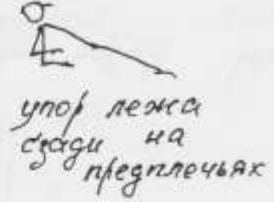 упор лежа
сзади на
предплечьях